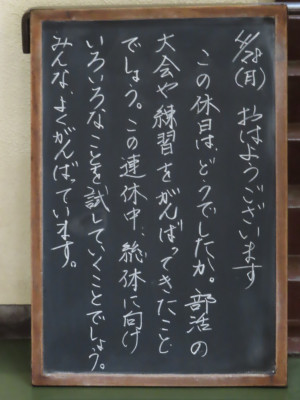 4/28（月） おはようございます
この休日は、どうでしたか。部活の
大会や練習をがんばってきたこと
でしょう。この連休中、総体に向け
いろいろなことを試していくことでしょう。
みんな、よくがんばっています。